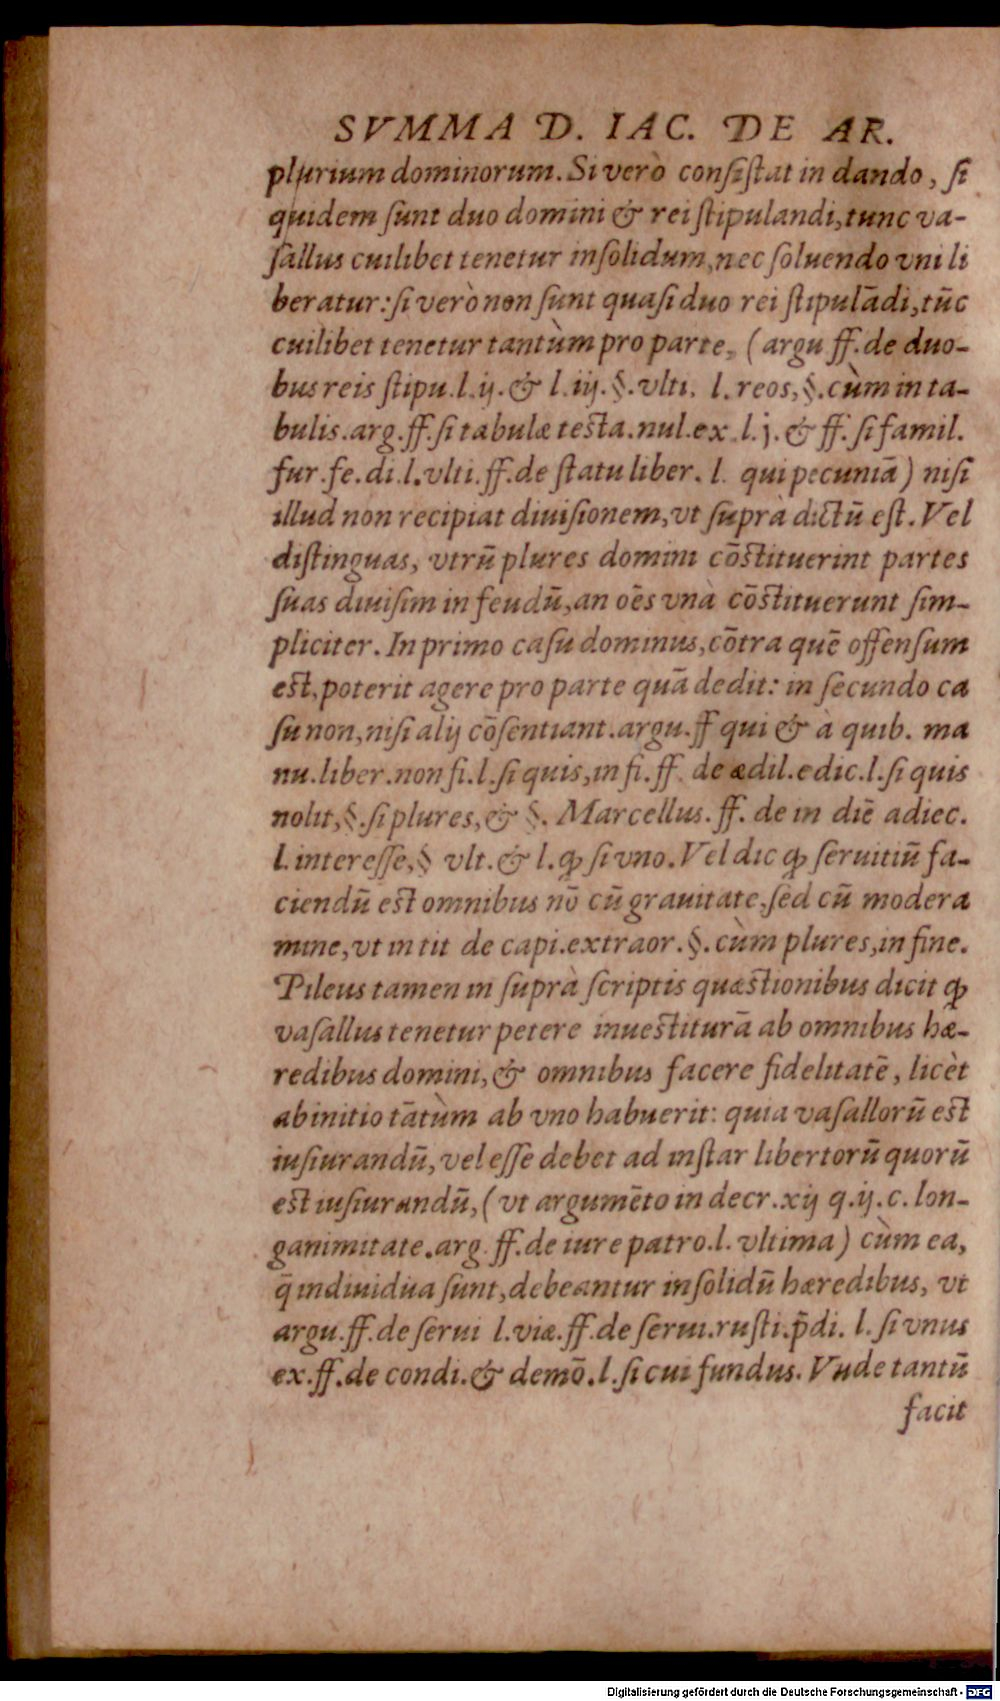 SVMMA D. IAC. DE AR.
plurium dominorum. Si verò consistat in dando, si
quidem sunt duo domini & rei stipulandi, tunc va-
sallus cuilibet tenetur insolidum, nec soluendo vni li
beratur: si verò non sunt quasi duo rei stipulādi, tūc
cuilibet tenetur tantùm pro parte, (argu ff. de duo-
bus reis stipu. l. ij. & l. iij. §. vlti. l. reos, §. cùm in ta-
bulis. arg. ff. si tabulæ testa. nul. ex. l. j. & ff. si famil.
fur. fe. di. l. vlti. ff. de statu liber. l. qui pecuniā) nisi
illud non recipiat diuisionem, vt suprà dictū est. Vel
distinguas, vtrū plures domini cōstituerint partes
suas diuisim in feudū, an oēs vnà cōstituerunt sim-
pliciter. In primo casu dominus, cōtra quē offensum
est, poterit agere pro parte quā dedit: in secundo ca
su non, nisi alij cōsentiant. argu. ff qui & à quib. ma
nu. liber. non fi. l. si quis, in fi. ff. de ædil. edic. l. si quis
nolit, §. si plures, & §. Marcellus. ff. de in diē adiec.
l. interesse, § vlt. & l. ꝙ si vno. Vel dic ꝙ seruitiū fa-
ciendū est omnibus nō cū grauitate, sed cū modera
mine, vt in tit de capi. extraor. §. cùm plures, in fine.
Pileus tamen in suprà scriptis quæstionibus dicit ꝙ
vasallus tenetur petere inuestiturā ab omnibus hæ-
redibus domini, & omnibus facere fidelitatē, licèt
ab initio tātùm ab vno habuerit: quia vasallorū est
iusiurandū, vel esse debet ad instar libertorū quorū
est iusiurandū, (vt argumēto in decr. xij q. ij. c. lon-
ganimitate. arg. ff. de iure patro. l. vltima) cùm ea,
q̄ indiuidua sunt, debeantur insolidū hæredibus, vt
argu. ff. de serui l. viæ. ff. de serui. rusti. p̄di. l. si vnus
ex. ff. de condi. & demō. l. si cui fundus. Vnde tantū
facit
Digitalisierung gefördert durch die Deutsche Forschungsgemeinschaft - DFG